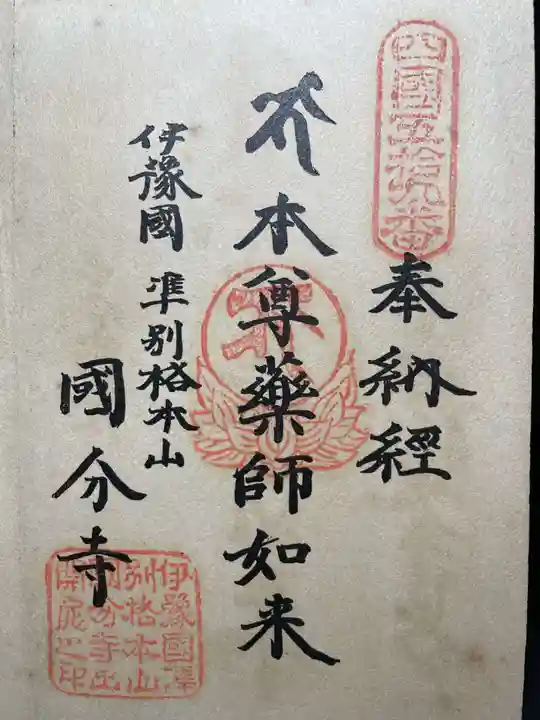 四國五拾九番
奉納経
本尊薬師如来
伊豫國 準別格本山
國分寺
伊豫國準
別格本山
國分寺出
開扉之印